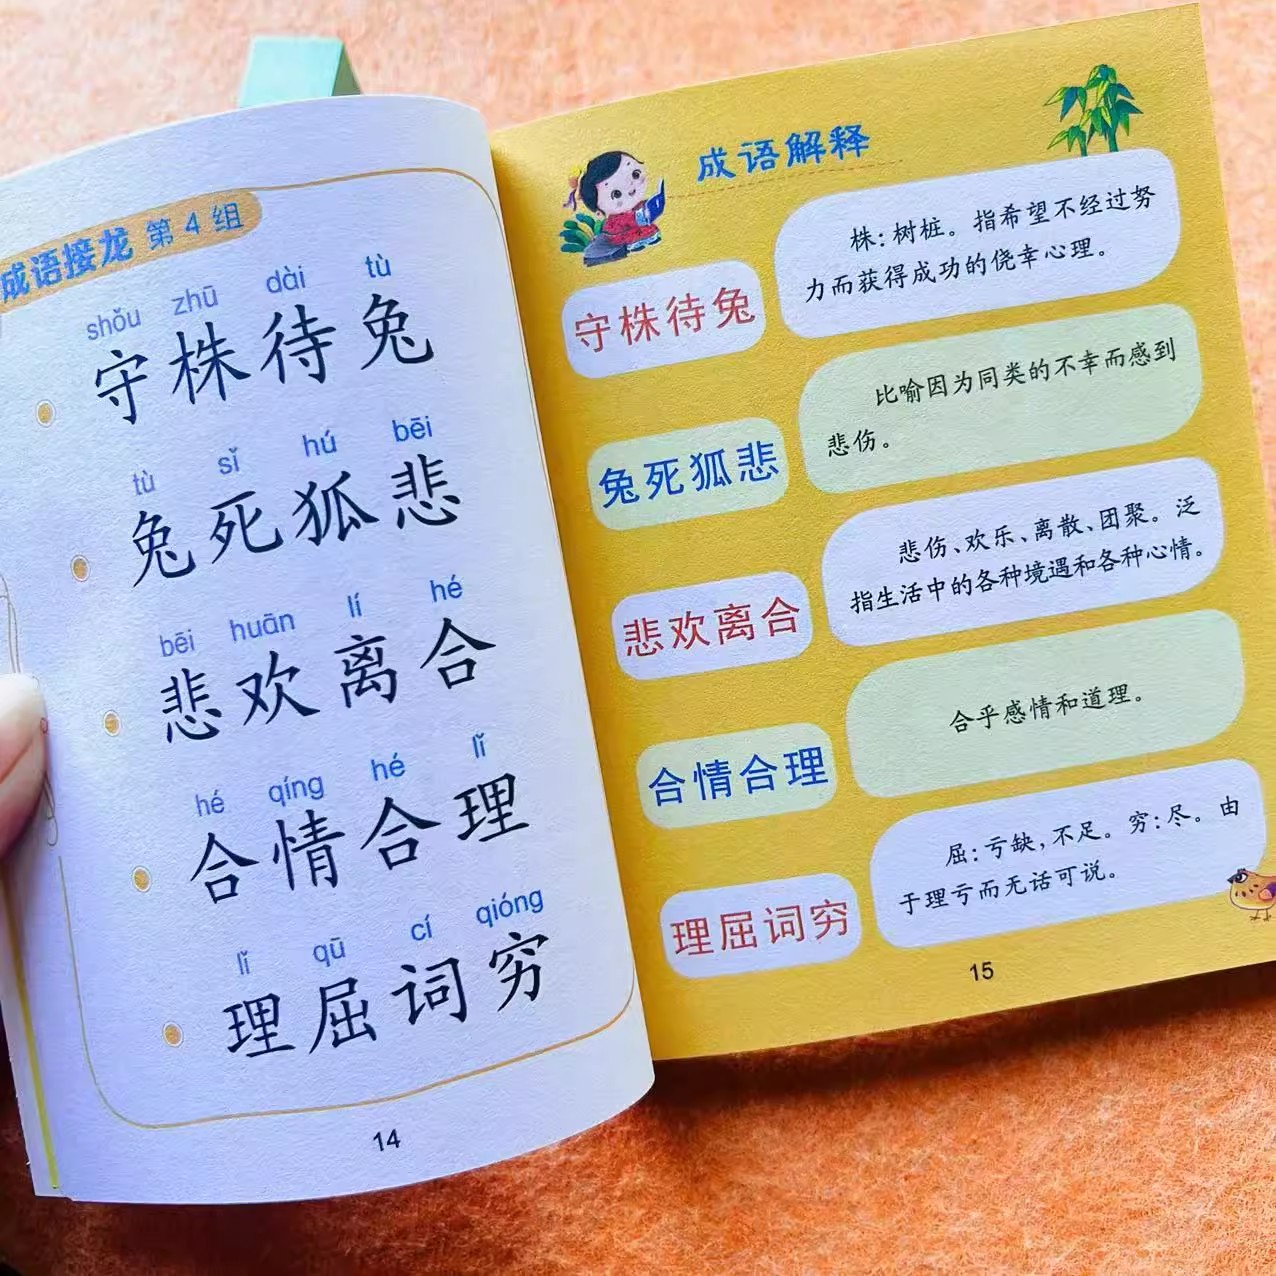 成语接龙 第4组
shǒu zhū dài tù
守株待兔
tù sǐ hú bēi
兔死狐悲
bēi huān lí hé
悲欢离合
hé qíng hé lǐ
合情合理
lǐ qū cí qióng
理屈词穷
14
成语解释
守株待兔
株:树桩。指希望不经过努
力而获得成功的侥幸心理。
兔死狐悲
比喻因为同类的不幸而感到
悲伤。
悲欢离合
悲伤、欢乐、离散、团聚。泛
指生活中的各种境遇和各种心情。
合情合理
合乎感情和道理。
理屈词穷
屈:亏缺,不足。穷:尽。由
于理亏而无话可说。
15